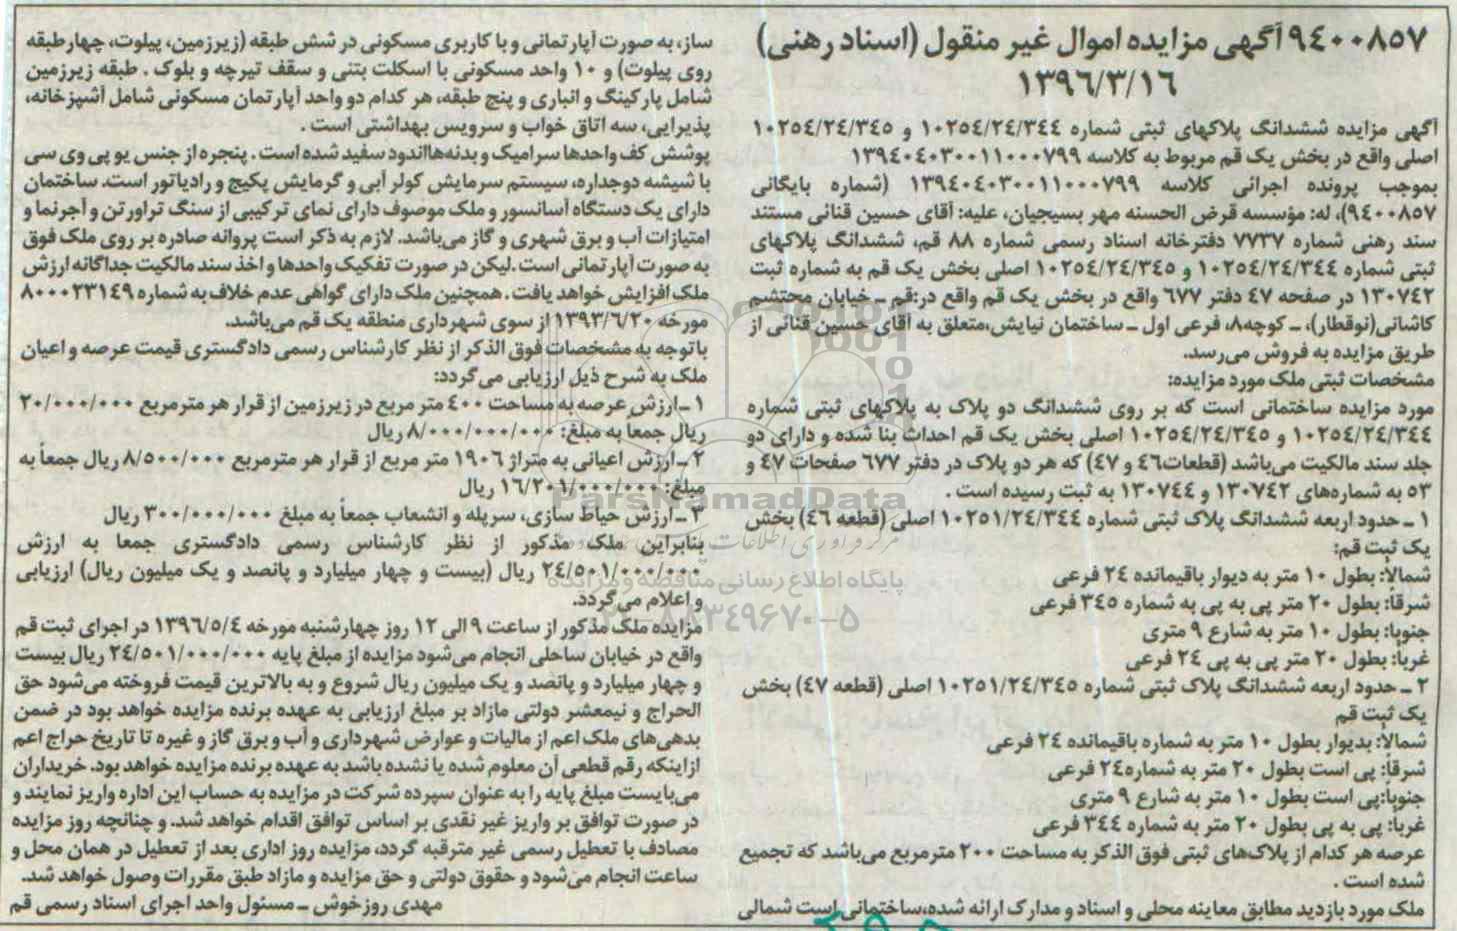 ۹۴۰۰۸۵۷ آگهی مزایده اموال غیر منقول (اسناد رهنی)
۱۳۹۶/۳/۱۶
آگهی مزایده ششدانگ پلاکهای ثبتی شماره ۱۰۲۵۴/۲۴/۳۴۴ و ۱۰۲۵۴/۲۴/۳۴۵
اصلی واقع در بخش یک قم مربوط به کلاسه ۱۳۹۴۰۴۰۳۰۰۱۱۰۰۰۷۹۹
بموجب پرونده اجرائی کلاسه ۱۳۹۴۰۴۰۳۰۰۱۱۰۰۰۷۹۹ (شماره بایگانی
۹۴۰۰۸۵۷)، له: مؤسسه قرض الحسنه مهر بسیجیان، علیه: آقای حسین قنائی مستند
سند رهنی شماره ۷۷۳۷ دفترخانه اسناد رسمی شماره ۸۸ قم، ششدانگ پلاکهای
ثبتی شماره ۱۰۲۵۴/۲۴/۳۴۴ و ۱۰۲۵۴/۲۴/۳۴۵ اصلی بخش یک قم به شماره ثبت
۱۳۰۷۴۲ در صفحه ۴۷ دفتر ۶۷۷ واقع در بخش یک قم واقع در:قم ـ خیابان محتشم
کاشانی(نوقطار)، ـ کوچه۸، فرعی اول ـ ساختمان نیایش،متعلق به آقای حسین قنائی از
طریق مزایده به فروش می‌رسد.
مشخصات ثبتی ملک مورد مزایده:
مورد مزایده ساختمانی است که بر روی ششدانگ دو پلاک به پلاکهای ثبتی شماره
۱۰۲۵۴/۲۴/۳۴۴ و ۱۰۲۵۴/۲۴/۳۴۵ اصلی بخش یک قم احداث بنا شده و دارای دو
جلد سند مالکیت می‌باشد (قطعات۴۶ و ۴۷) که هر دو پلاک در دفتر ۶۷۷ صفحات ۴۷ و
۵۳ به شماره‌های ۱۳۰۷۴۲ و ۱۳۰۷۴۴ به ثبت رسیده است .
۱ ـ حدود اربعه ششدانگ پلاک ثبتی شماره ۱۰۲۵۱/۲۴/۳۴۴ اصلی (قطعه ۴۶) بخش
یک ثبت قم:
شمالاً: بطول ۱۰ متر به دیوار باقیمانده ۲۴ فرعی
شرقاً: بطول ۲۰ متر پی به پی به شماره ۳۴۵ فرعی
جنوباً: بطول ۱۰ متر به شارع ۹ متری
غرباً: بطول ۲۰ متر پی به پی ۲۴ فرعی
۲ ـ حدود اربعه ششدانگ پلاک ثبتی شماره ۱۰۲۵۱/۲۴/۳۴۵ اصلی (قطعه ۴۷) بخش
یک ثبت قم
شمالاً: بدیوار بطول ۱۰ متر به شماره باقیمانده ۲۴ فرعی
شرقاً: پی است بطول ۲۰ متر به شماره۲۴ فرعی
جنوباً:پی است بطول ۱۰ متر به شارع ۹ متری
غرباً: پی به پی بطول ۲۰ متر به شماره ۳۴۴ فرعی
عرصه هر کدام از پلاک‌های ثبتی فوق الذکر به مساحت ۲۰۰ مترمربع می‌باشد که تجمیع
شده است .
ملک مورد بازدید مطابق معاینه محلی و اسناد و مدارک ارائه شده،ساختمانی است شمالی
ساز، به صورت آپارتمانی و با کاربری مسکونی در شش طبقه (زیرزمین، پیلوت، چهارطبقه
روی پیلوت) و ۱۰ واحد مسکونی با اسکلت بتنی و سقف تیرچه و بلوک . طبقه زیرزمین
شامل پارکینگ و انباری و پنج طبقه، هر کدام دو واحد آپارتمان مسکونی شامل آشپزخانه،
پذیرایی، سه اتاق خواب و سرویس بهداشتی است .
پوشش کف واحدها سرامیک و بدنه‌هااندود سفید شده است . پنجره از جنس یو پی وی سی
با شیشه دوجداره، سیستم سرمایش کولر آبی و گرمایش پکیج و رادیاتور است. ساختمان
دارای یک دستگاه آسانسور و ملک موصوف دارای نمای ترکیبی از سنگ تراورتن و آجرنما و
امتیازات آب و برق شهری و گاز می‌باشد. لازم به ذکر است پروانه صادره بر روی ملک فوق
به صورت آپارتمانی است .لیکن در صورت تفکیک واحدها و اخذ سند مالکیت جداگانه ارزش
ملک افزایش خواهد یافت . همچنین ملک دارای گواهی عدم خلاف به شماره ۸۰۰۰۲۳۱۴۹
مورخه ۱۳۹۳/۶/۲۰ از سوی شهرداری منطقه یک قم می‌باشد.
با توجه به مشخصات فوق الذکر از نظر کارشناس رسمی دادگستری قیمت عرصه و اعیان
ملک به شرح ذیل ارزیابی می‌گردد:
۱ ـ ارزش عرصه به مساحت ۴۰۰ متر مربع در زیرزمین از قرار هر مترمربع ۲۰/۰۰۰/۰۰۰
ریال جمعاً به مبلغ: ۸/۰۰۰/۰۰۰/۰۰۰ ریال
۲ ـ ارزش اعیانی به متراژ ۱۹۰۶ متر مربع از قرار هر مترمربع ۸/۵۰۰/۰۰۰ ریال جمعاً به
مبلغ: ۱۶/۲۰۱/۰۰۰/۰۰۰ ریال
۳ ـ ارزش حیاط سازی، سرپله و انشعاب جمعاً به مبلغ ۳۰۰/۰۰۰/۰۰۰ ریال
بنابراین ملک مذکور از نظر کارشناس رسمی دادگستری جمعا به ارزش
۲۴/۵۰۱/۰۰۰/۰۰۰ ریال (بیست و چهار میلیارد و پانصد و یک میلیون ریال) ارزیابی
و اعلام می‌گردد.
مزایده ملک مذکور از ساعت ۹ الی ۱۲ روز چهارشنبه مورخه ۱۳۹۶/۵/۴ در اجرای ثبت قم
واقع در خیابان ساحلی انجام می‌شود مزایده از مبلغ پایه ۲۴/۵۰۱/۰۰۰/۰۰۰ ریال بیست
و چهار میلیارد و پانصد و یک میلیون ریال شروع و به بالاترین قیمت فروخته می‌شود حق
الحراج و نیمعشر دولتی مازاد بر مبلغ ارزیابی به عهده برنده مزایده خواهد بود در ضمن
بدهی‌های ملک اعم از مالیات و عوارض شهرداری و آب و برق گاز و غیره تا تاریخ حراج اعم
ازاینکه رقم قطعی آن معلوم شده یا نشده باشد به عهده برنده مزایده خواهد بود. خریداران
می‌بایست مبلغ پایه را به عنوان سپرده شرکت در مزایده به حساب این اداره واریز نمایند و
در صورت توافق بر واریز غیر نقدی بر اساس توافق اقدام خواهد شد. و چنانچه روز مزایده
مصادف با تعطیل رسمی غیر مترقبه گردد، مزایده روز اداری بعد از تعطیل در همان محل و
ساعت انجام می‌شود و حقوق دولتی و حق مزایده و مازاد طبق مقررات وصول خواهد شد.
مهدی روزخوش ـ مسئول واحد اجرای اسناد رسمی قم
ParsNamadData
پایگاه اطلاع رسانی مناقصه و مزایده